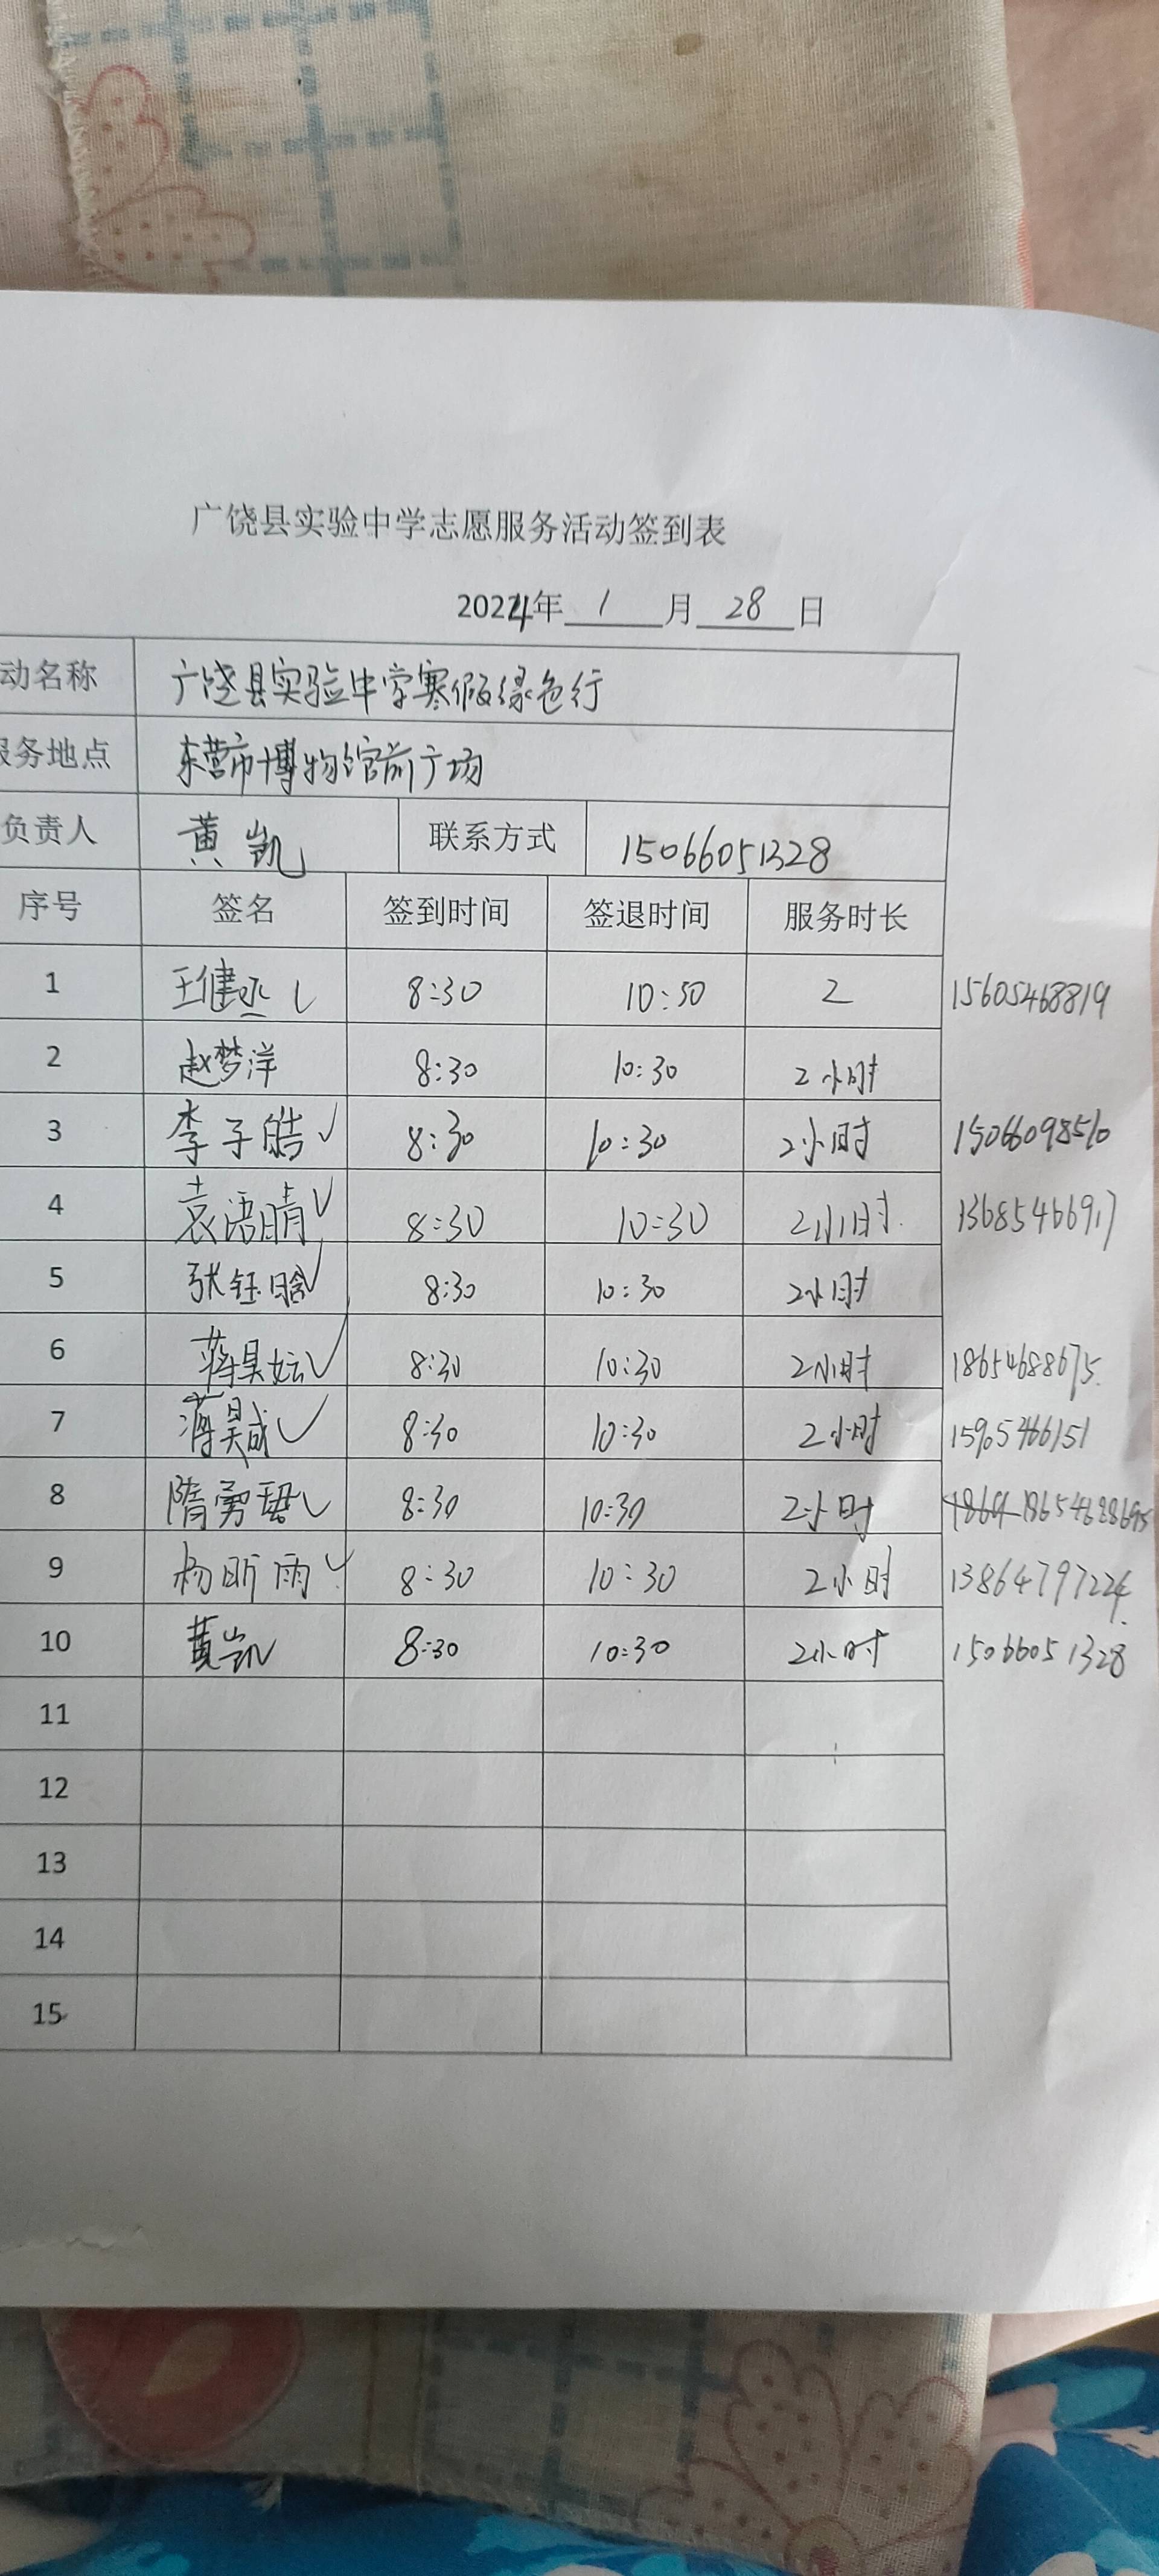 广饶县实验中学志愿服务活动签到表
2024年 1 月 28 日
动名称 广饶县实验中学寒假绿色行
服务地点 东营市博物馆前广场
负责人 黄凯 联系方式 15066051328
序号 签名 签到时间 签退时间 服务时长
1 王健丞 8:30 10:30 2 15605468819
2 赵梦洋 8:30 10:30 2小时
3 李子皓 ✓ 8:30 10:30 2小时 15066098510
4 袁语晴 ✓ 8:30 10:30 2小时 13685466917
5 张钰晗 ✓ 8:30 10:30 2小时
6 蒋昊妘 ✓ 8:30 10:30 2小时 18654688675
7 蒋昊成 ✓ 8:30 10:30 2小时 15905466151
8 隋勇 8:30 10:30 2小时
9 杨昕雨 ✓ 8:30 10:30 2小时 13864797224
10 黄凯 8:30 10:30 2小时 15066051328
11
12
13
14
15